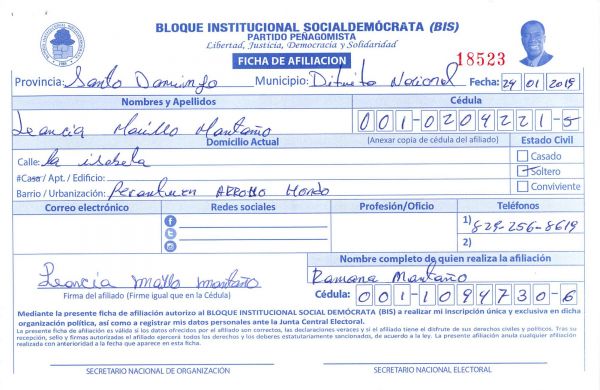 BLOQUE INSTITUCIONAL SOCIALDEMÓCRATA (BIS)
PARTIDO PEÑAGOMISTA
Libertad, Justicia, Democracia y Solidaridad
FICHA DE AFILIACION
18523
Provincia: Santo Domingo Municipio: Ditrito Nacional Fecha: 24 01 2019
Nombres y Apellidos Cédula
Leancia Maillo Montaño 001-0204221-5
Domicilio Actual (Anexar copia de cédula del afiliado) Estado Civil
Calle: la isabela Casado
#Casa / Apt. / Edificio: Soltero
Barrio / Urbanización: ARROLLO Hondo Conviviente
Correo electrónico Redes sociales Profesión/Oficio Teléfonos
1) 829-256-8619
2)
Nombre completo de quien realiza la afiliación
Leancia Maillo montaño Ramona Montaño
Firma del afiliado (Firme igual que en la Cédula) Cédula: 001-1094730-6
Mediante la presente ficha de afiliación autorizo al BLOQUE INSTITUCIONAL SOCIAL DEMÓCRATA (BIS) a realizar mi inscripción única y exclusiva en dicha
organización política, así como a registrar mis datos personales ante la Junta Central Electoral.
La presente ficha de afiliación es válida si los datos ofrecidos por el afiliado son correctos, las declaraciones veraces y si el afiliado tiene el disfrute de sus derechos civiles y políticos. Tras su
recepción, sello y firmas autorizadas el afiliado ejercerá todos los derechos y los deberes estatutariamente sancionados, de acuerdo a la ley. La presente afiliación anula cualquier afiliación
realizada con anterioridad a la fecha que aparece en esta ficha.
SECRETARIO NACIONAL DE ORGANIZACIÓN SECRETARIO NACIONAL ELECTORAL